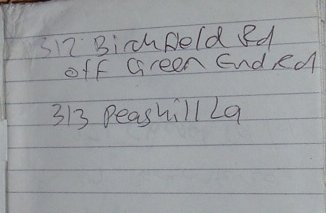 312 Birchfield Rd
off Green End Rd
313 Peashill La